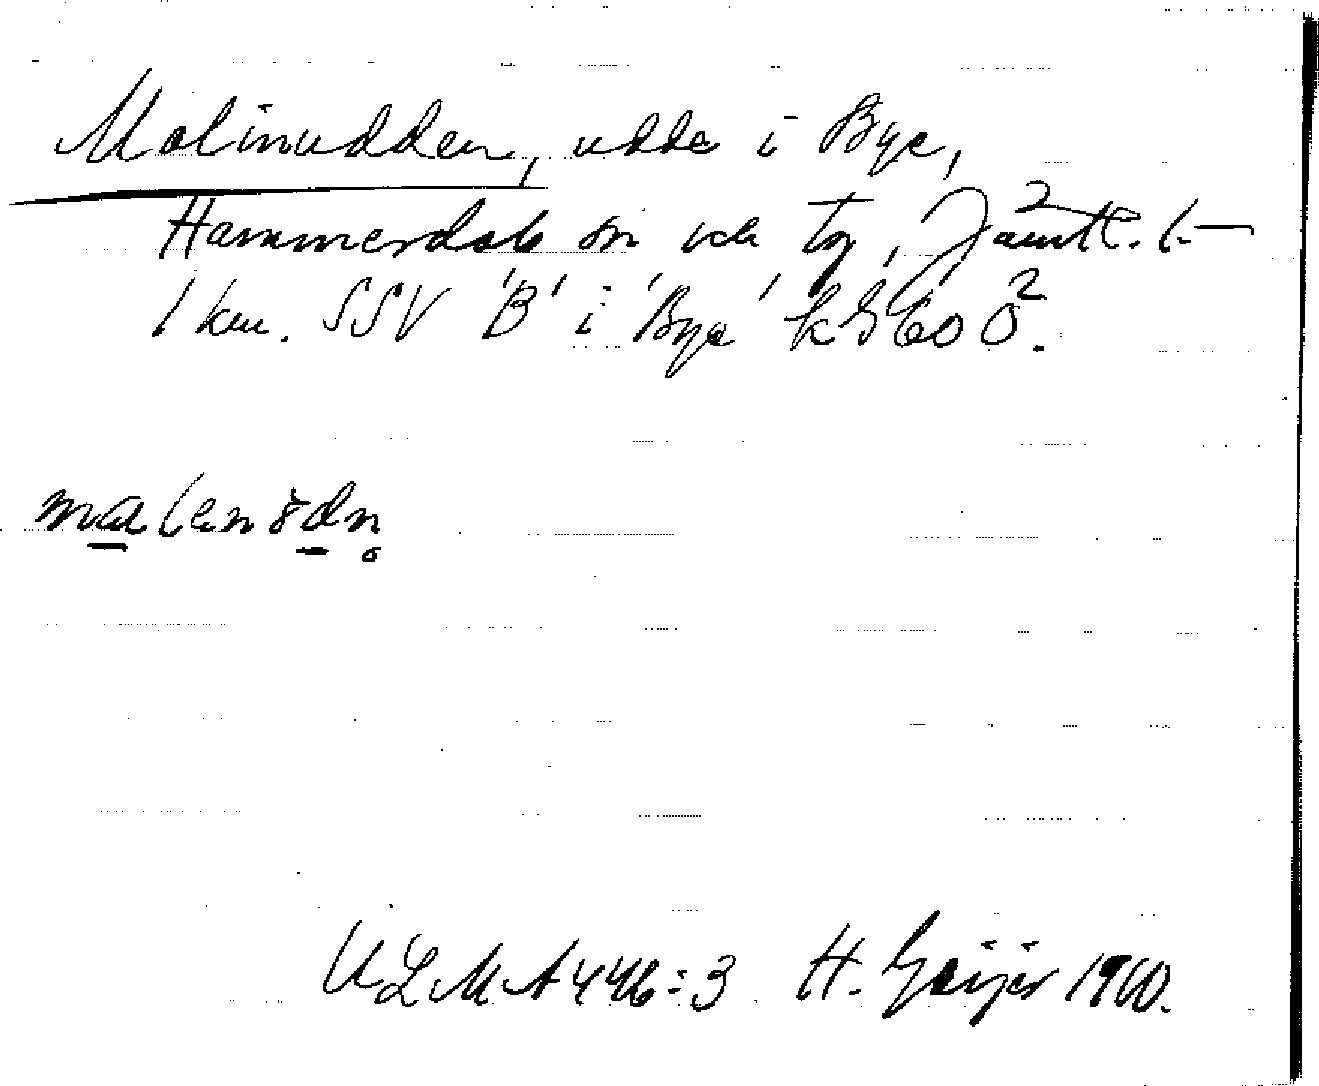 Malinudden, udde i Bye,
Hammerdals sn och tg, Jämtl. l.
1 km. SSV 'B' i 'Bye' k 60 Ö.
malenudn
ULMA 446:3 H. Geijer 1910.